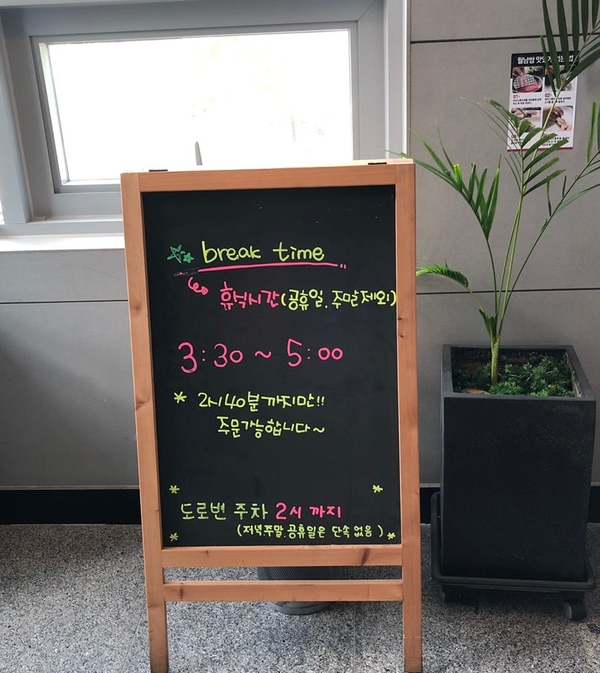 break time
휴식시간(공휴일.주말제외)
3:30 ~ 5:00
* 2시40분까지만!!
주문가능합니다~
도로변 주차 2시 까지
(저녁.주말.공휴일은 단속 없음)